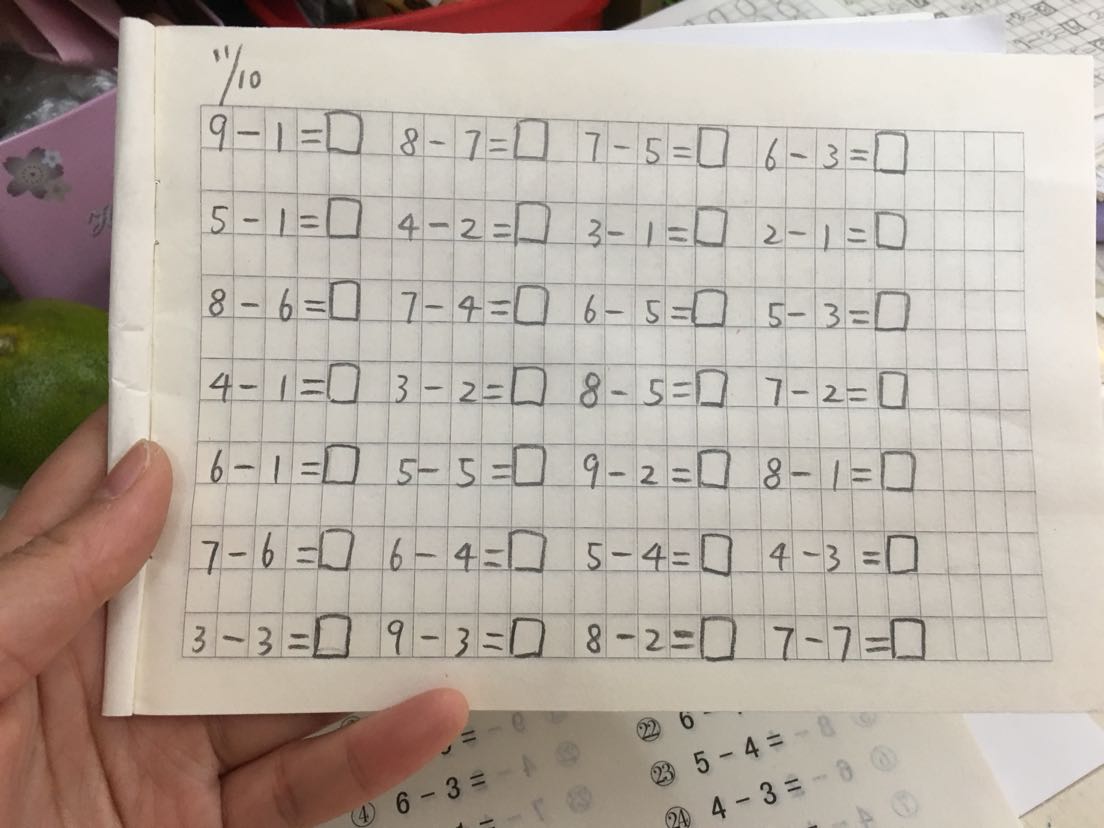 11/10
9-1=□ 8-7=□ 7-5=□ 6-3=□
5-1=□ 4-2=□ 3-1=□ 2-1=□
8-6=□ 7-4=□ 6-5=□ 5-3=□
4-1=□ 3-2=□ 8-5=□ 7-2=□
6-1=□ 5-5=□ 9-2=□ 8-1=□
7-6=□ 6-4=□ 5-4=□ 4-3=□
3-3=□ 9-3=□ 8-2=□ 7-7=□
㉒ 6-
㉓ 5-4=
④ 6-3=
㉔ 4-3=